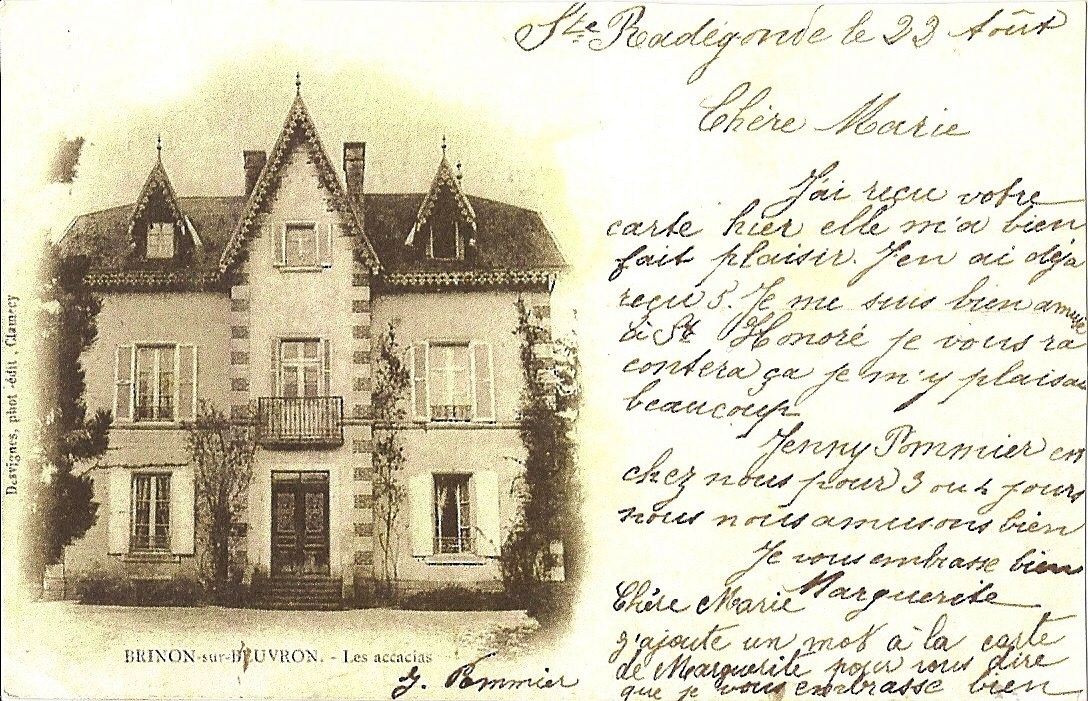 Ste Radégonde le 22 Août
Chère Marie
J'ai reçu votre
carte hier elle m'a bien
fait plaisir. J'en ai déjà
reçu 5. Je me suis bien amusé
à St Honoré je vous ra
contera ça je m'y plaisai
beaucoup
Jenny Pommier est
chez nous pour 3 ou 4 jours
nous nous amusons bien
Je vous embrasse bien
Marguerite
Chère Marie
J'ajoute un mot à la carte
de Marguerite pour vous dire
que je vous embrasse bien
J. Pommier
BRINON-sur-BEUVRON. - Les accacias
Desvignes, phot.-édit., Clamecy